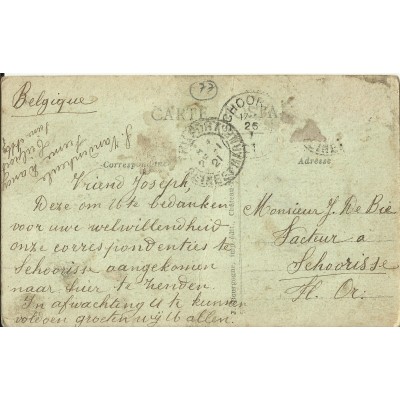 77
Belgique
CARTE
Correspondance
Adresse
SCHOORISSE
26
21
Vriend Joseph,
Deze om U te bedanken
voor uwe welwillendheid
onze correspondentien te
Schoorisse aangekomen
naar hier te zenden.
In afwachting U te kunnen
voldoen groeten wij U allen.
Monsieur J. De Bie
Facteur a
Schoorisse
Fl. Or.